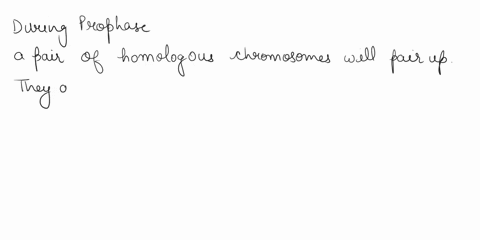 During Prophase
a pair of homologous chromosomes will pair up.
They o